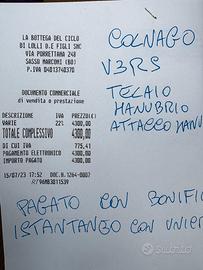 LA BOTTEGA DEL CICLO
DI LOLLI D.E FIGLI SNC
VIA PORRETTANA 248
SASSO MARCONI (BO)
P.IVA 04013740370
DOCUMENTO COMMERCIALE
di vendita o prestazione
DESCRIZIONE IVA PREZZO(€)
VARIE 22% 4300,00
TOTALE COMPLESSIVO 4300,00
DI CUI IVA 775,41
PAGAMENTO ELETTRONICO 4300,00
IMPORTO PAGATO 4300,00
15/07/23 17:52 DOC.N.1264-0007
COLNAGO
V3RS
TELAIO
MANUBRIO
ATTACCO
PAGATO CON BONIFI
ISTANTANEO CON UNICR
Subito.it